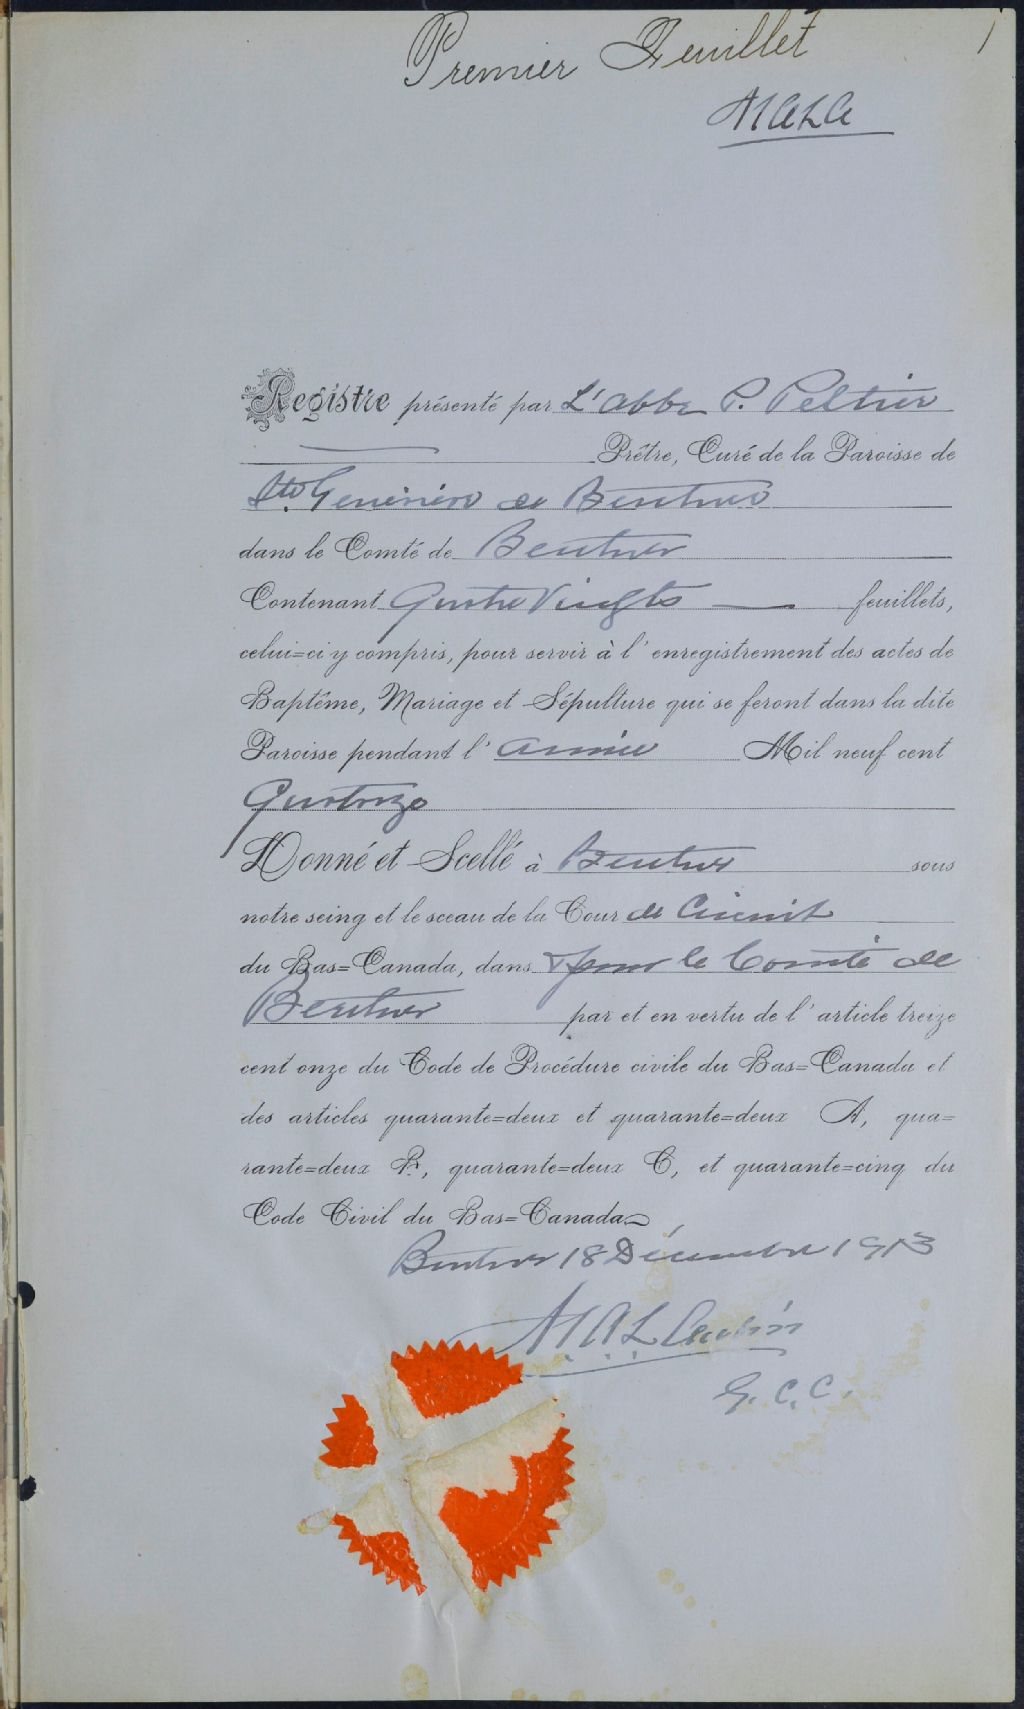 Premier Feuillet
1
MALA
Registre présenté par L'abbé P. Peltier
Prêtre, Curé de la Paroisse de
Ste Geneviève de Berthier
dans le Comté de Berthier
Contenant Quatre Vingts feuillets,
celui=ci y compris, pour servir à l'enregistrement des actes de
Baptême, Mariage et Sépulture qui se feront dans la dite
Paroisse pendant l'année Mil neuf cent
Quatorze
Donné et Scellé à Berthier sous
notre seing et le sceau de la Cour de Circuit
du Bas=Canada, dans & pour le Comté de
Berthier par et en vertu de l'article treize
cent onze du Code de Procédure civile du Bas=Canada et
des articles quarante=deux et quarante=deux A, qua=
rante=deux B, quarante=deux C, et quarante=cinq du
Code Civil du Bas=Canada
Berthier 18 Décembre 1913
G. C. C.